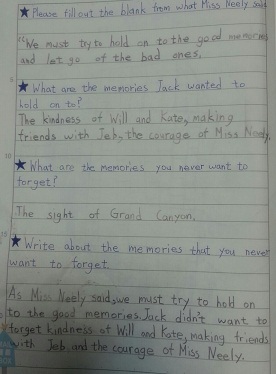 ★Please fill out the blank from what Miss Neely said.
"We must try to hold on to the good memories
and let go of the bad ones.
★What are the memories Jack wanted to
hold on to?
The kindness of Will and Kate, making
friends with Jeb, the courage of Miss Neely.
★What are the memories you never want to
forget?
The sight of Grand Canyon.
★Write about the memories that you never
want to forget
As Miss Neely said, we must try to hold on
to the good memories. Jack didn't want to
forget kindness of Will and Kate, making friends
with Jeb and the courage of Miss Neely.